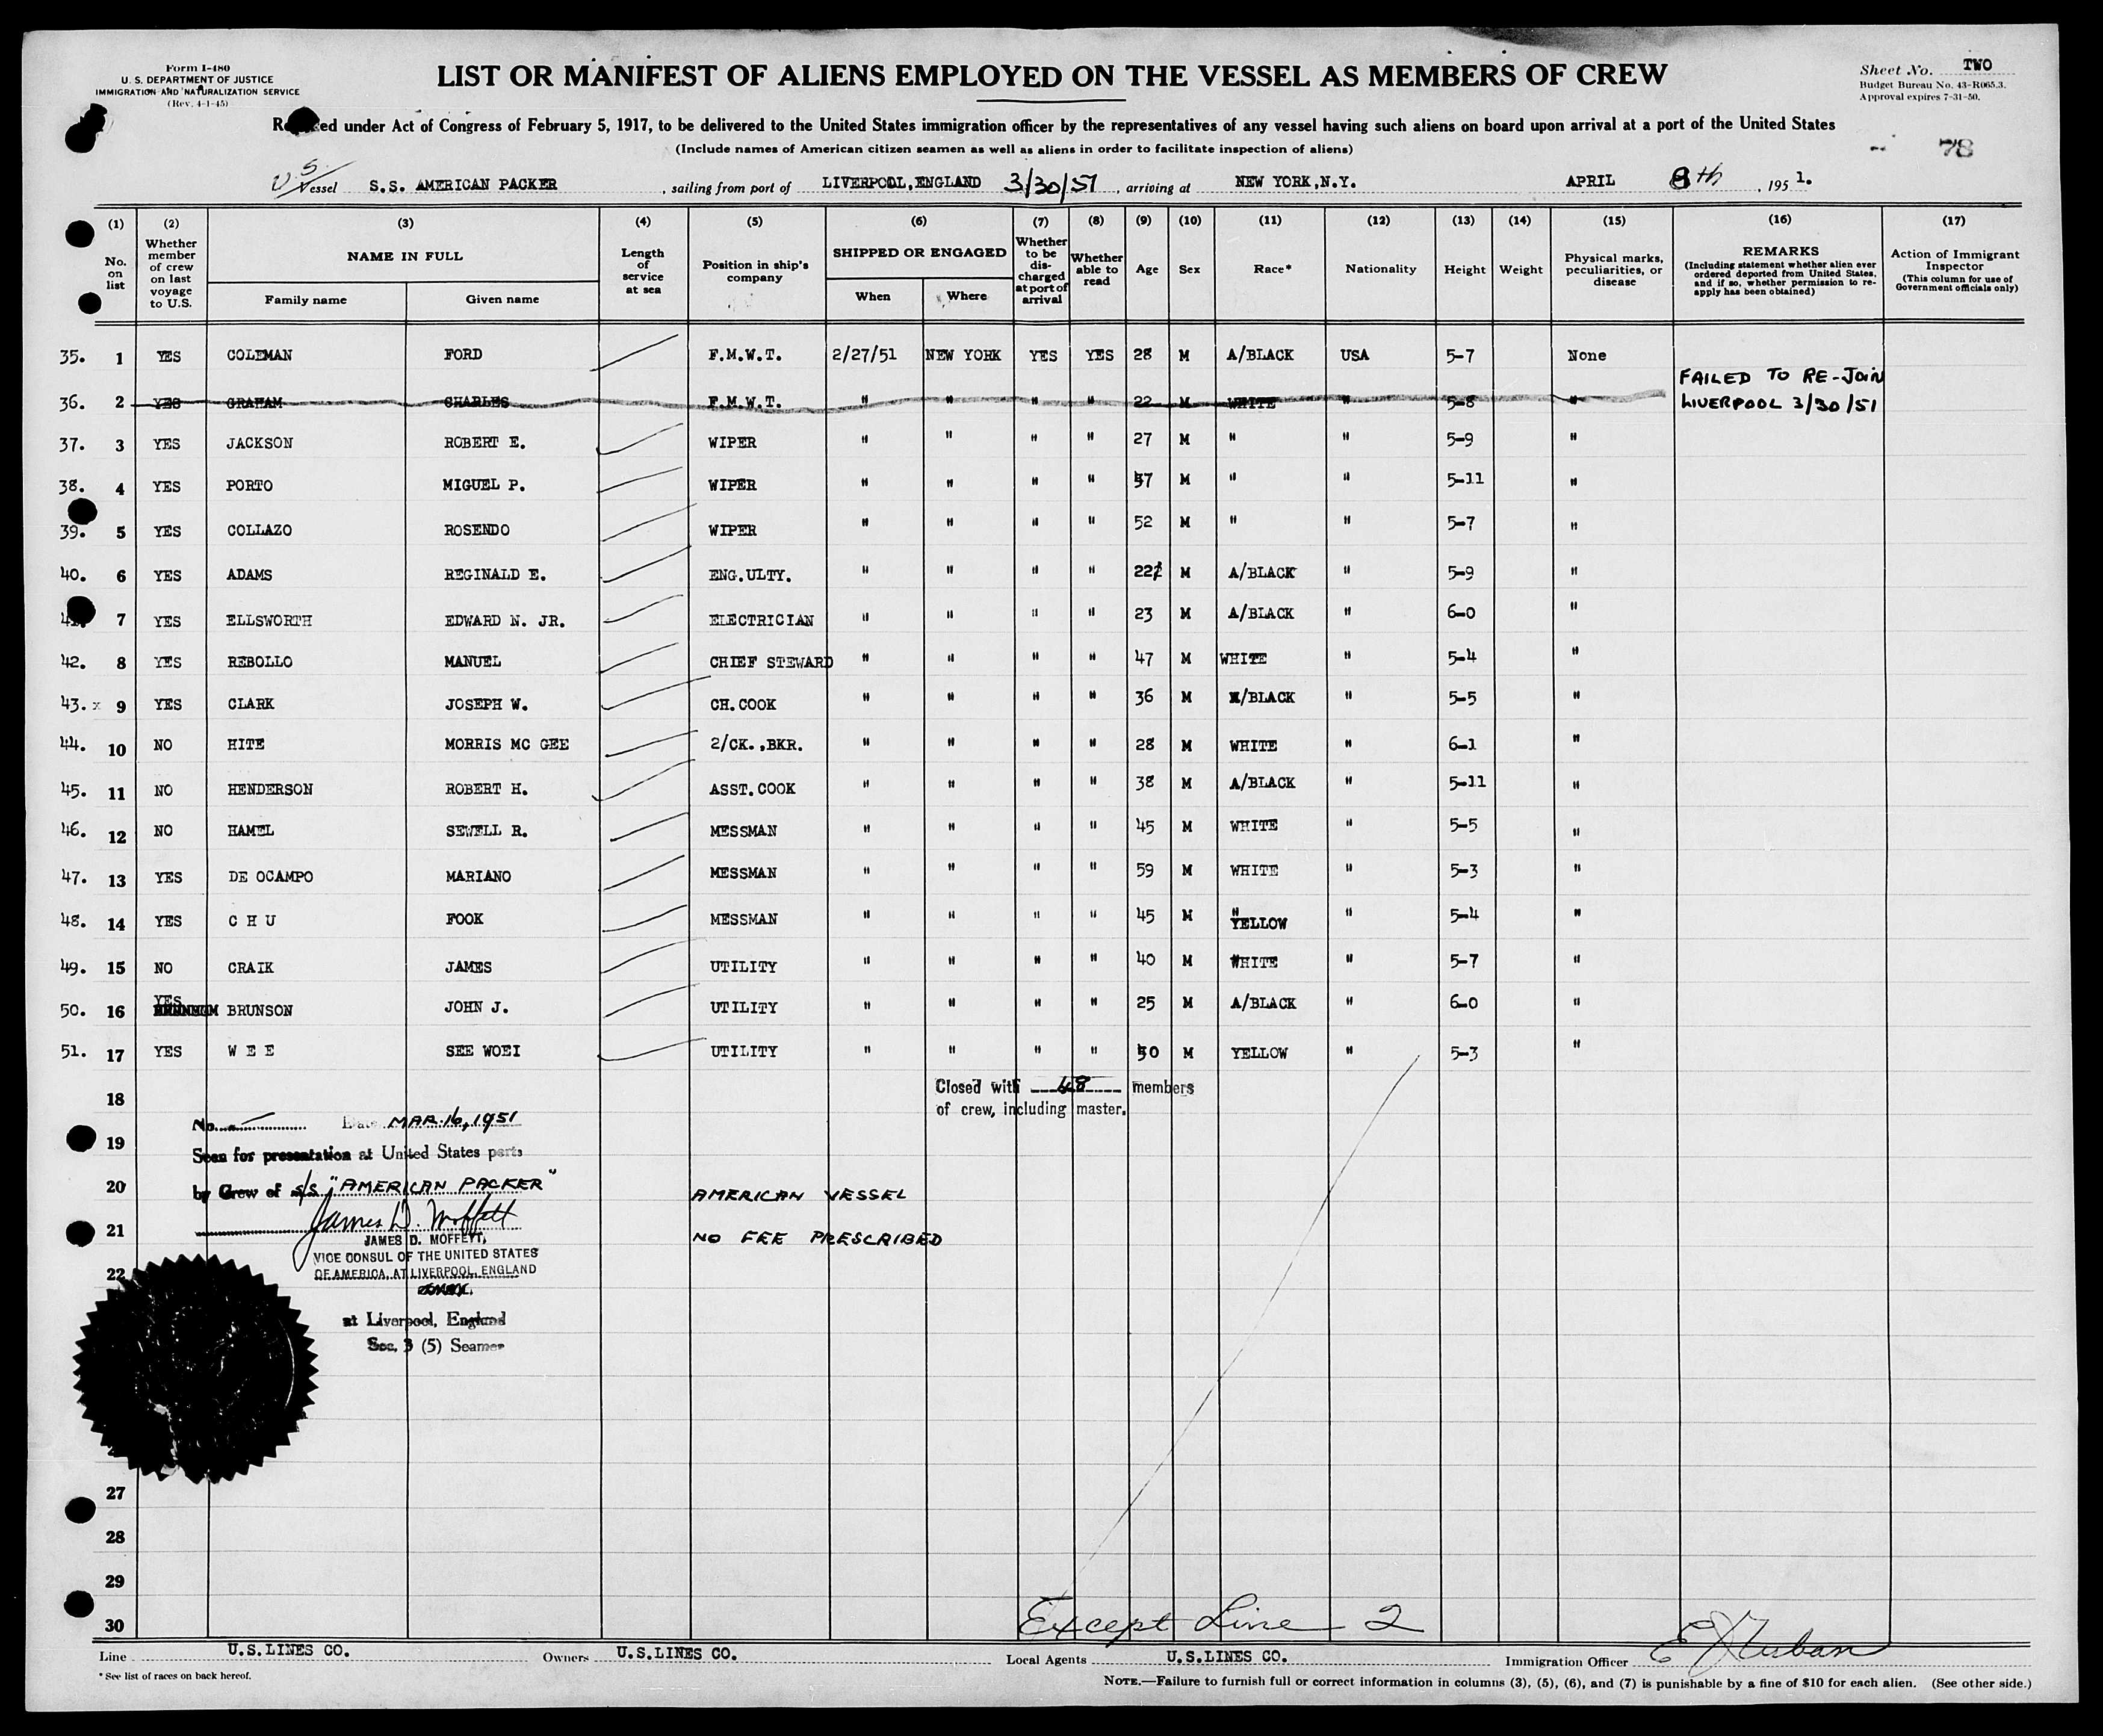 Form I-480
U. S. DEPARTMENT OF JUSTICE
IMMIGRATION AND NATURALIZATION SERVICE
(Rev. 4-1-45)
LIST OR MANIFEST OF ALIENS EMPLOYED ON THE VESSEL AS MEMBERS OF CREW
Sheet No. TWO
Budget Bureau No. 43-R065.3.
Approval expires 7-31-50.
under Act of Congress of February 5, 1917, to be delivered to the United States immigration officer by the representatives of any vessel having such aliens on board upon arrival at a port of the United States
(Include names of American citizen seamen as well as aliens in order to facilitate inspection of aliens)
78
U.S. Vessel S.S. AMERICAN PACKER , sailing from port of LIVERPOOL,ENGLAND 3/30/51 , arriving at NEW YORK,N.Y. APRIL 8th , 195 1.
(1) No. on list
(2) Whether member of crew on last voyage to U.S.
(3) NAME IN FULL Family name Given name
(4) Length of service at sea
(5) Position in ship's company
(6) SHIPPED OR ENGAGED When Where
(7) Whether to be discharged at port of arrival
(8) Whether able to read
(9) Age
(10) Sex
(11) Race*
(12) Nationality
(13) Height
(14) Weight
(15) Physical marks, peculiarities, or disease
(16) REMARKS (Including statement whether alien ever ordered deported from United States, and if so, whether permission to re-apply has been obtained)
(17) Action of Immigrant Inspector (This column for use of Government officials only)
35. 1 YES COLEMAN FORD F.M.W.T. 2/27/51 NEW YORK YES YES 28 M A/BLACK USA 5-7 None
36. 2 YES GRAHAM CHARLES F.M.W.T. " " " " 22 M WHITE " 5-8 " FAILED TO RE-JOIN LIVERPOOL 3/30/51
37. 3 YES JACKSON ROBERT E. WIPER " " " " 27 M " " 5-9 "
38. 4 YES PORTO MIGUEL P. WIPER " " " " 37 M " " 5-11 "
39. 5 YES COLLAZO ROSENDO WIPER " " " " 52 M " " 5-7 "
40. 6 YES ADAMS REGINALD E. ENG.ULTY. " " " " 22 M A/BLACK " 5-9 "
7 YES ELLSWORTH EDWARD N. JR. ELECTRICIAN " " " " 23 M A/BLACK " 6-0 "
42. 8 YES REBOLLO MANUEL CHIEF STEWARD " " " " 47 M WHITE " 5-4 "
43. x 9 YES CLARK JOSEPH W. CH.COOK " " " " 36 M /BLACK " 5-5 "
44. 10 NO HITE MORRIS MC GEE 2/CK.,BKR. " " " " 28 M WHITE " 6-1 "
45. 11 NO HENDERSON ROBERT H. ASST.COOK " " " " 38 M A/BLACK " 5-11 "
46. 12 NO HAMEL SEWELL R. MESSMAN " " " " 45 M WHITE " 5-5 "
47. 13 YES DE OCAMPO MARIANO MESSMAN " " " " 59 M WHITE " 5-3 "
48. 14 YES C H U FOOK MESSMAN " " " " 45 M " YELLOW " 5-4 "
49. 15 NO CRAIK JAMES UTILITY " " " " 40 M WHITE " 5-7 "
50. 16 YES BRUNSON JOHN J. UTILITY " " " " 25 M A/BLACK " 6-0 "
51. 17 YES W E E SEE WOEI UTILITY " " " " 50 M YELLOW " 5-3 "
Closed with 48 members
of crew, including master.
18
No. Date MAR. 16, 1951
19
Seen for presentation at United States ports
20
by Crew of S/S "AMERICAN PACKER"
AMERICAN VESSEL
21
James D. Moffett
NO FEE PRESCRIBED
JAMES D. MOFFETT,
VICE CONSUL OF THE UNITED STATES
22
OF AMERICA, AT LIVERPOOL, ENGLAND
at Liverpool, England
Sec. 3 (5) Seamen
27
28
29
30
Except Line 2
Line U.S.LINES CO. Owners U.S.LINES CO. Local Agents U.S.LINES CO. Immigration Officer
* See list of races on back hereof.
NOTE.—Failure to furnish full or correct information in columns (3), (5), (6), and (7) is punishable by a fine of $10 for each alien. (See other side.)